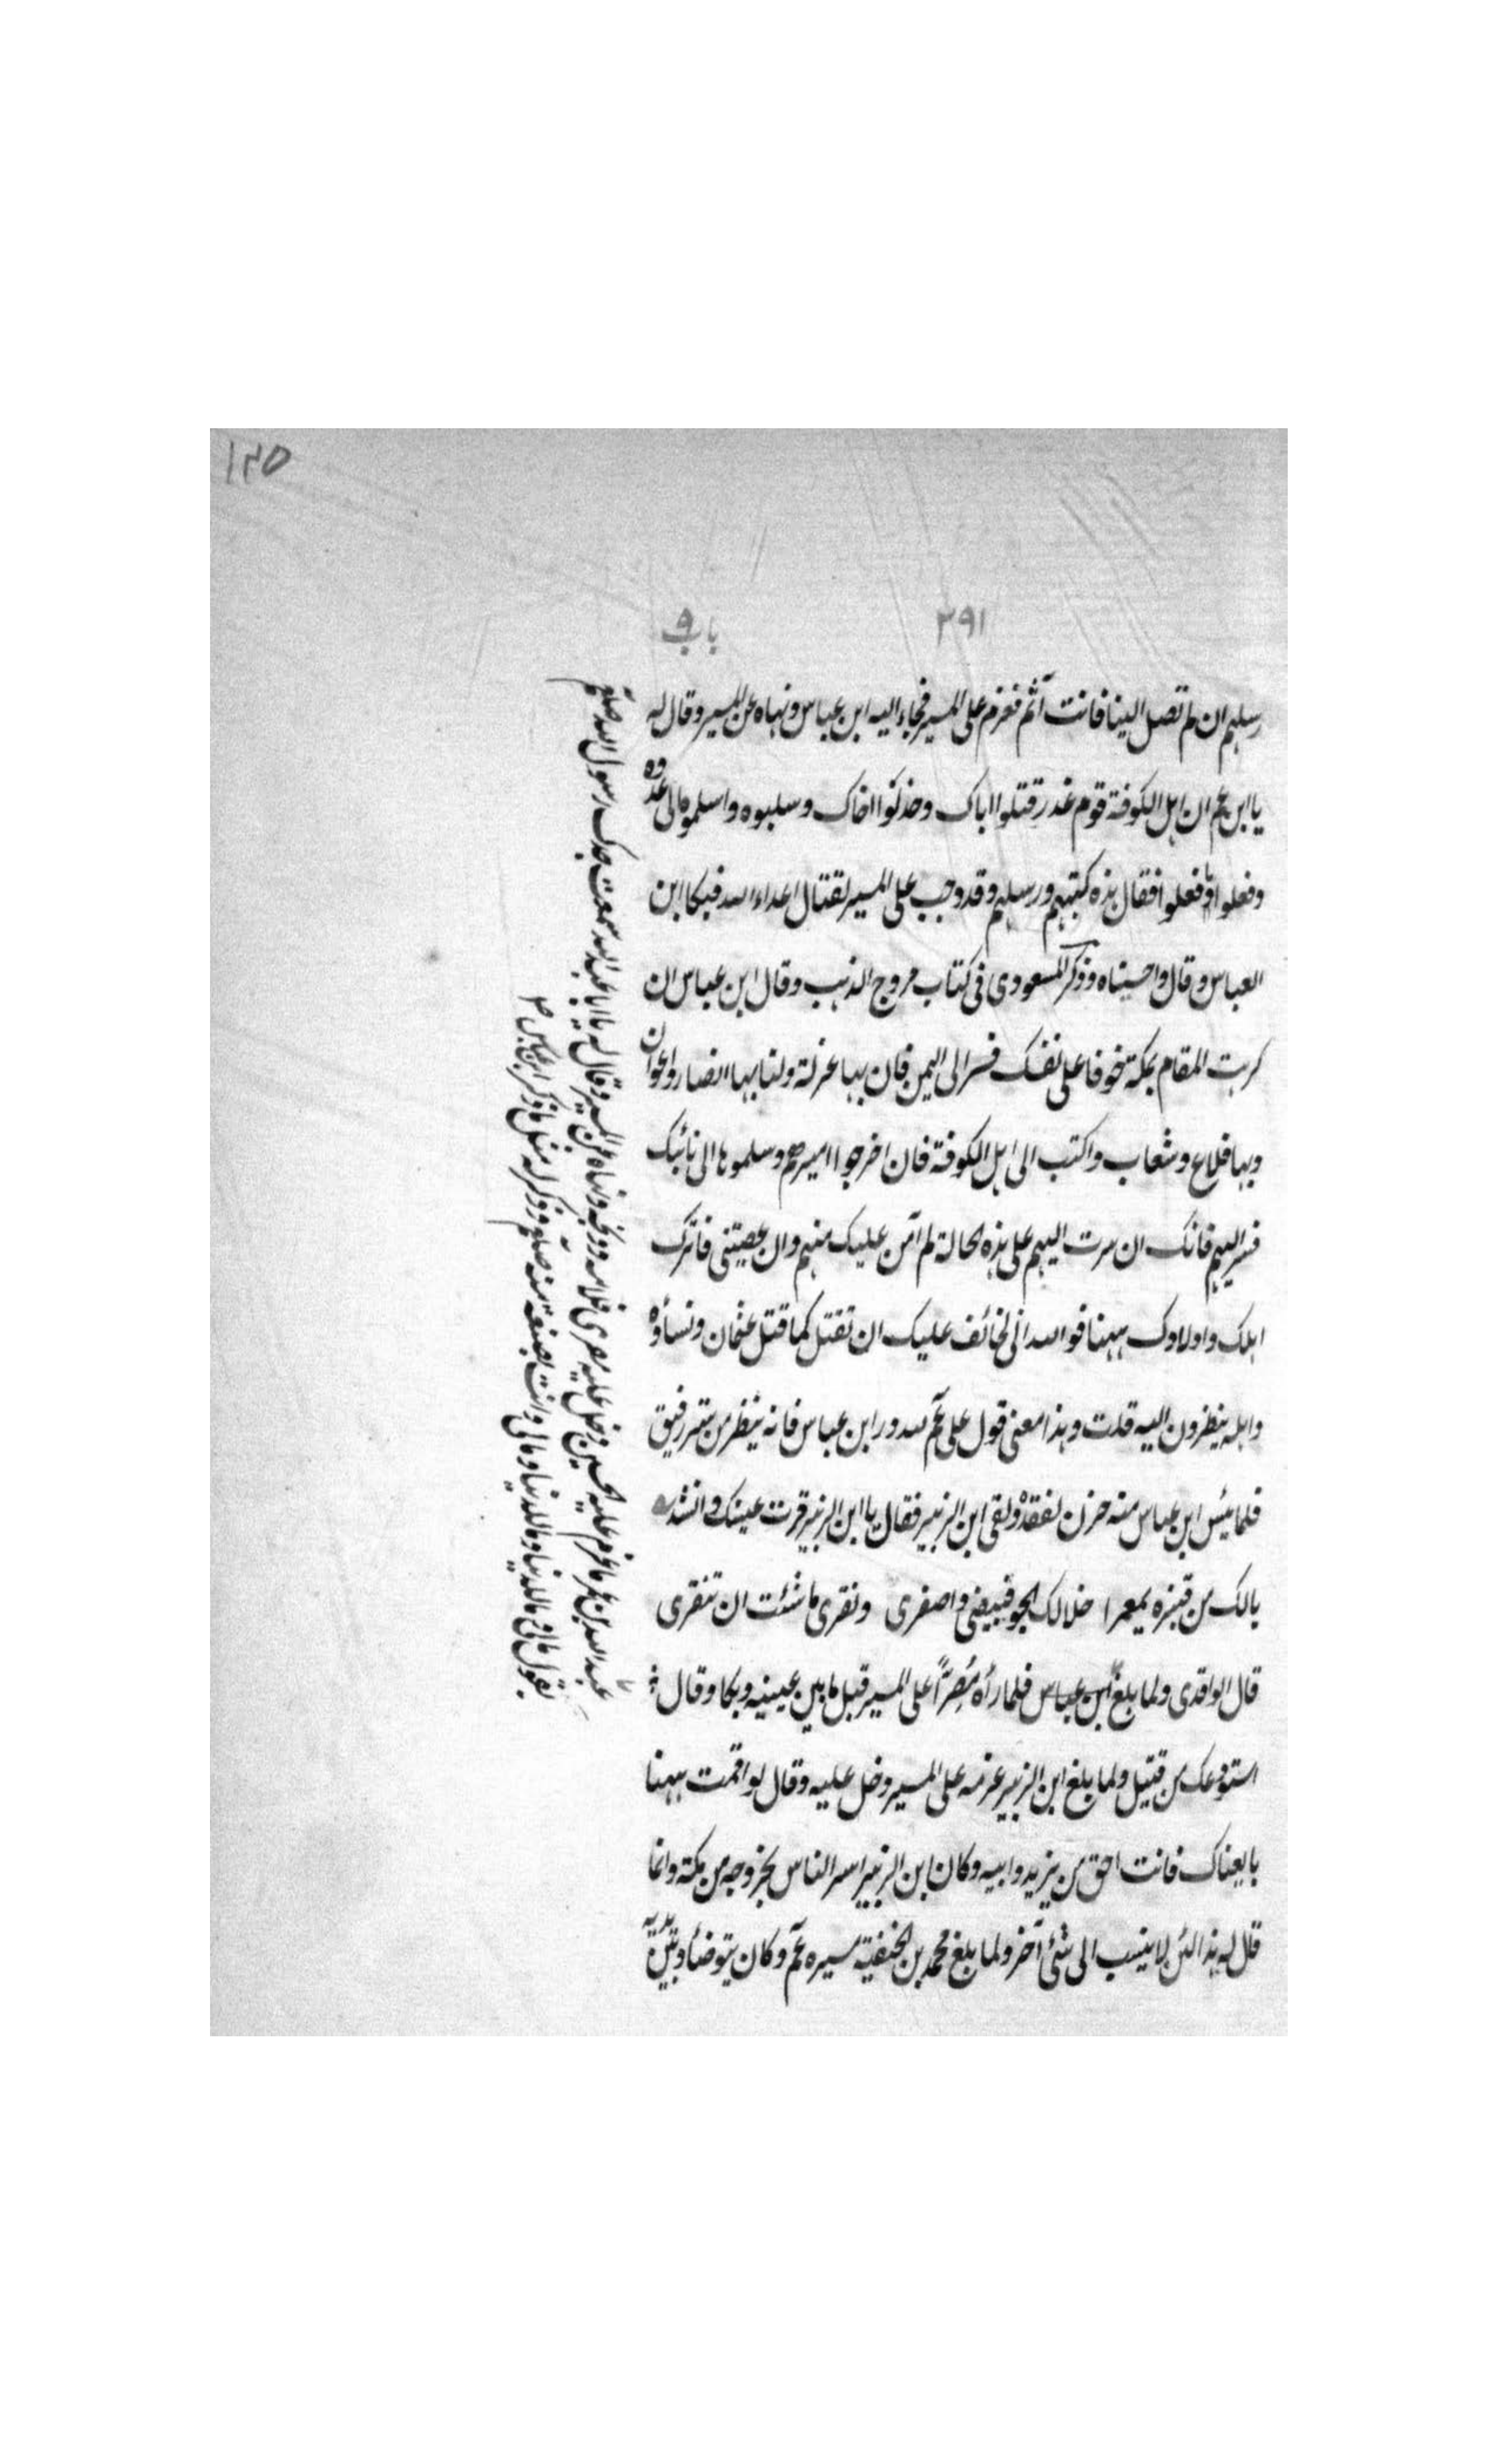 ١٢٥
٢٩١
باب ٩
رسلهم ان لم تصل الينا فانت آثم فعزم على المسير فجاء اليه ابن عباس ونهاه عن المسير وقال له
يا ابن عم ان اهل الكوفة قوم غدر قتلوا اباك وخذلوا اخاك وسلبوه واسلموه الى عدوه
وفعلوا وفعلوا فقال هذه كتبهم ورسلهم وقد وجب على المسير لقتال اعداء الله فبكا ابن
العباس وقال واحسيناه وذكر المسعودى فى كتاب مروج الذهب وقال ابن عباس ان
كرهت المقام بمكة خوفا على نفسك فسر الى اليمن فان بها عزلة ولنا بها انصار واعوان
وبها قلاع وشعاب واكتب الى اهل الكوفة فان اخرجوا اميرهم وسلموها الى نائبك
فسر اليهم فانك ان سرت اليهم على هذه الحالة لم آمن عليك منهم وان عصيتنى فاترك
اهلك واولادك ههنا فوالله انى لخائف عليك ان تقتل كما قتل عثمان ونساؤه
واهله ينظرون اليه قلت وهذا معنى قول على عم لله در ابن عباس فانه ينظر من ستر رقيق
فلما يئس ابن عباس منه حزن لفقده ولقى ابن الزبير فقال يا ابن الزبير قرت عينك وانشد
يالك من قبزه بمعمرا خلا لك الجو فبيضى واصفرى ونقرى ما شئت ان تنقرى
قال الواقدى ولما بلغ ابن عباس فلما رأه مُصِرّاً على المسير قبل ما بين عينيه وبكا وقال
استودعك من قتيل ولما بلغ ابن الزبير عزمه على المسير دخل عليه وقال لو اقمت ههنا
بايعناك فانت احق من يزيد وابيه وكان ابن الزبير اسر الناس بخروجه من مكة وانما
قال له هذا لئن لا ينسب الى شئ آخر ولما بلغ محمد بن الحنفية مسيره عم وكان يتوضأ وبين يديه
عبد الله بن عمر ما عزم عليه الحسين دخل عليه ونهاه عن المسير وقال له يا ابا عبد الله سمعت جدك رسول الله صلعم
يقول مالى وللدنيا وما للدنيا ومالى وانت بضعة منه صلعم وذكر له مثل ما ذكر ابن عباس